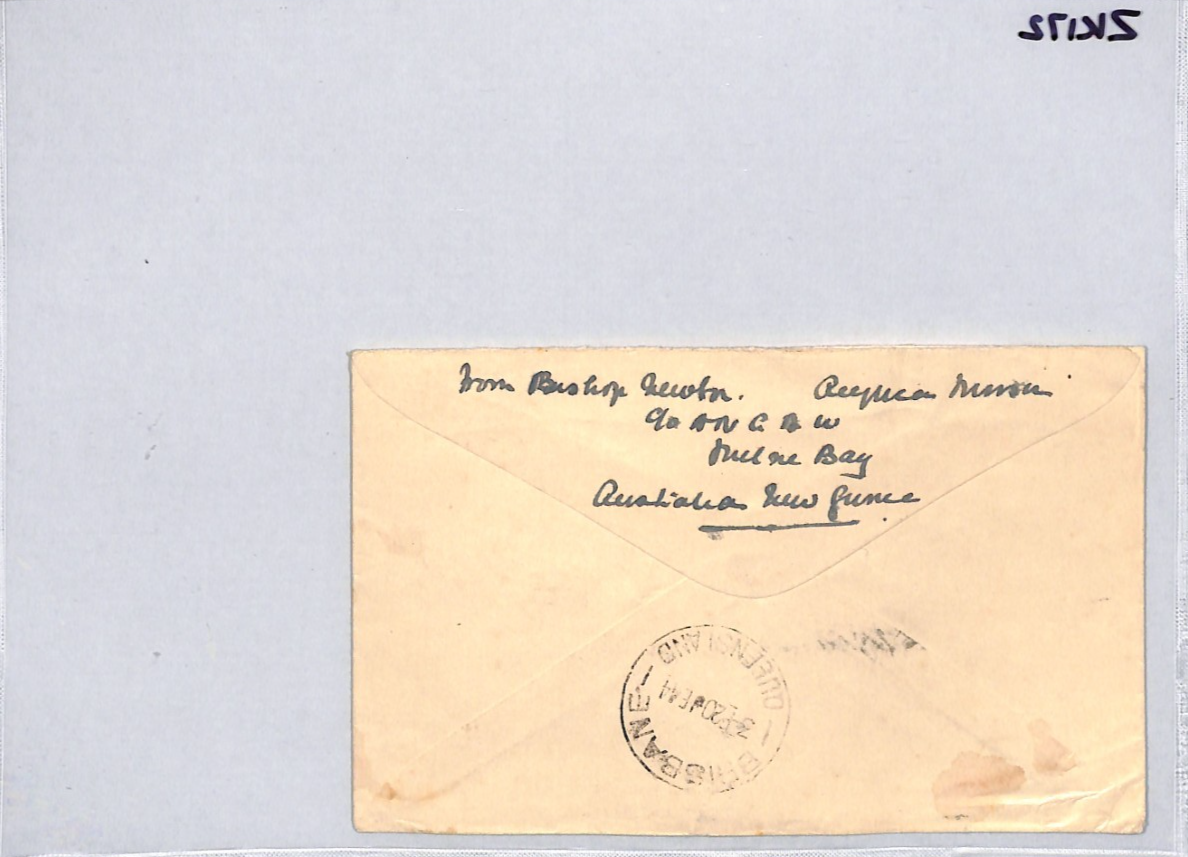 ZK172
From Bishop Newton. Anglican Mission
c/o A N G A U
Milne Bay
Australian New Guinea
BRISBANE
QUEENSLAND